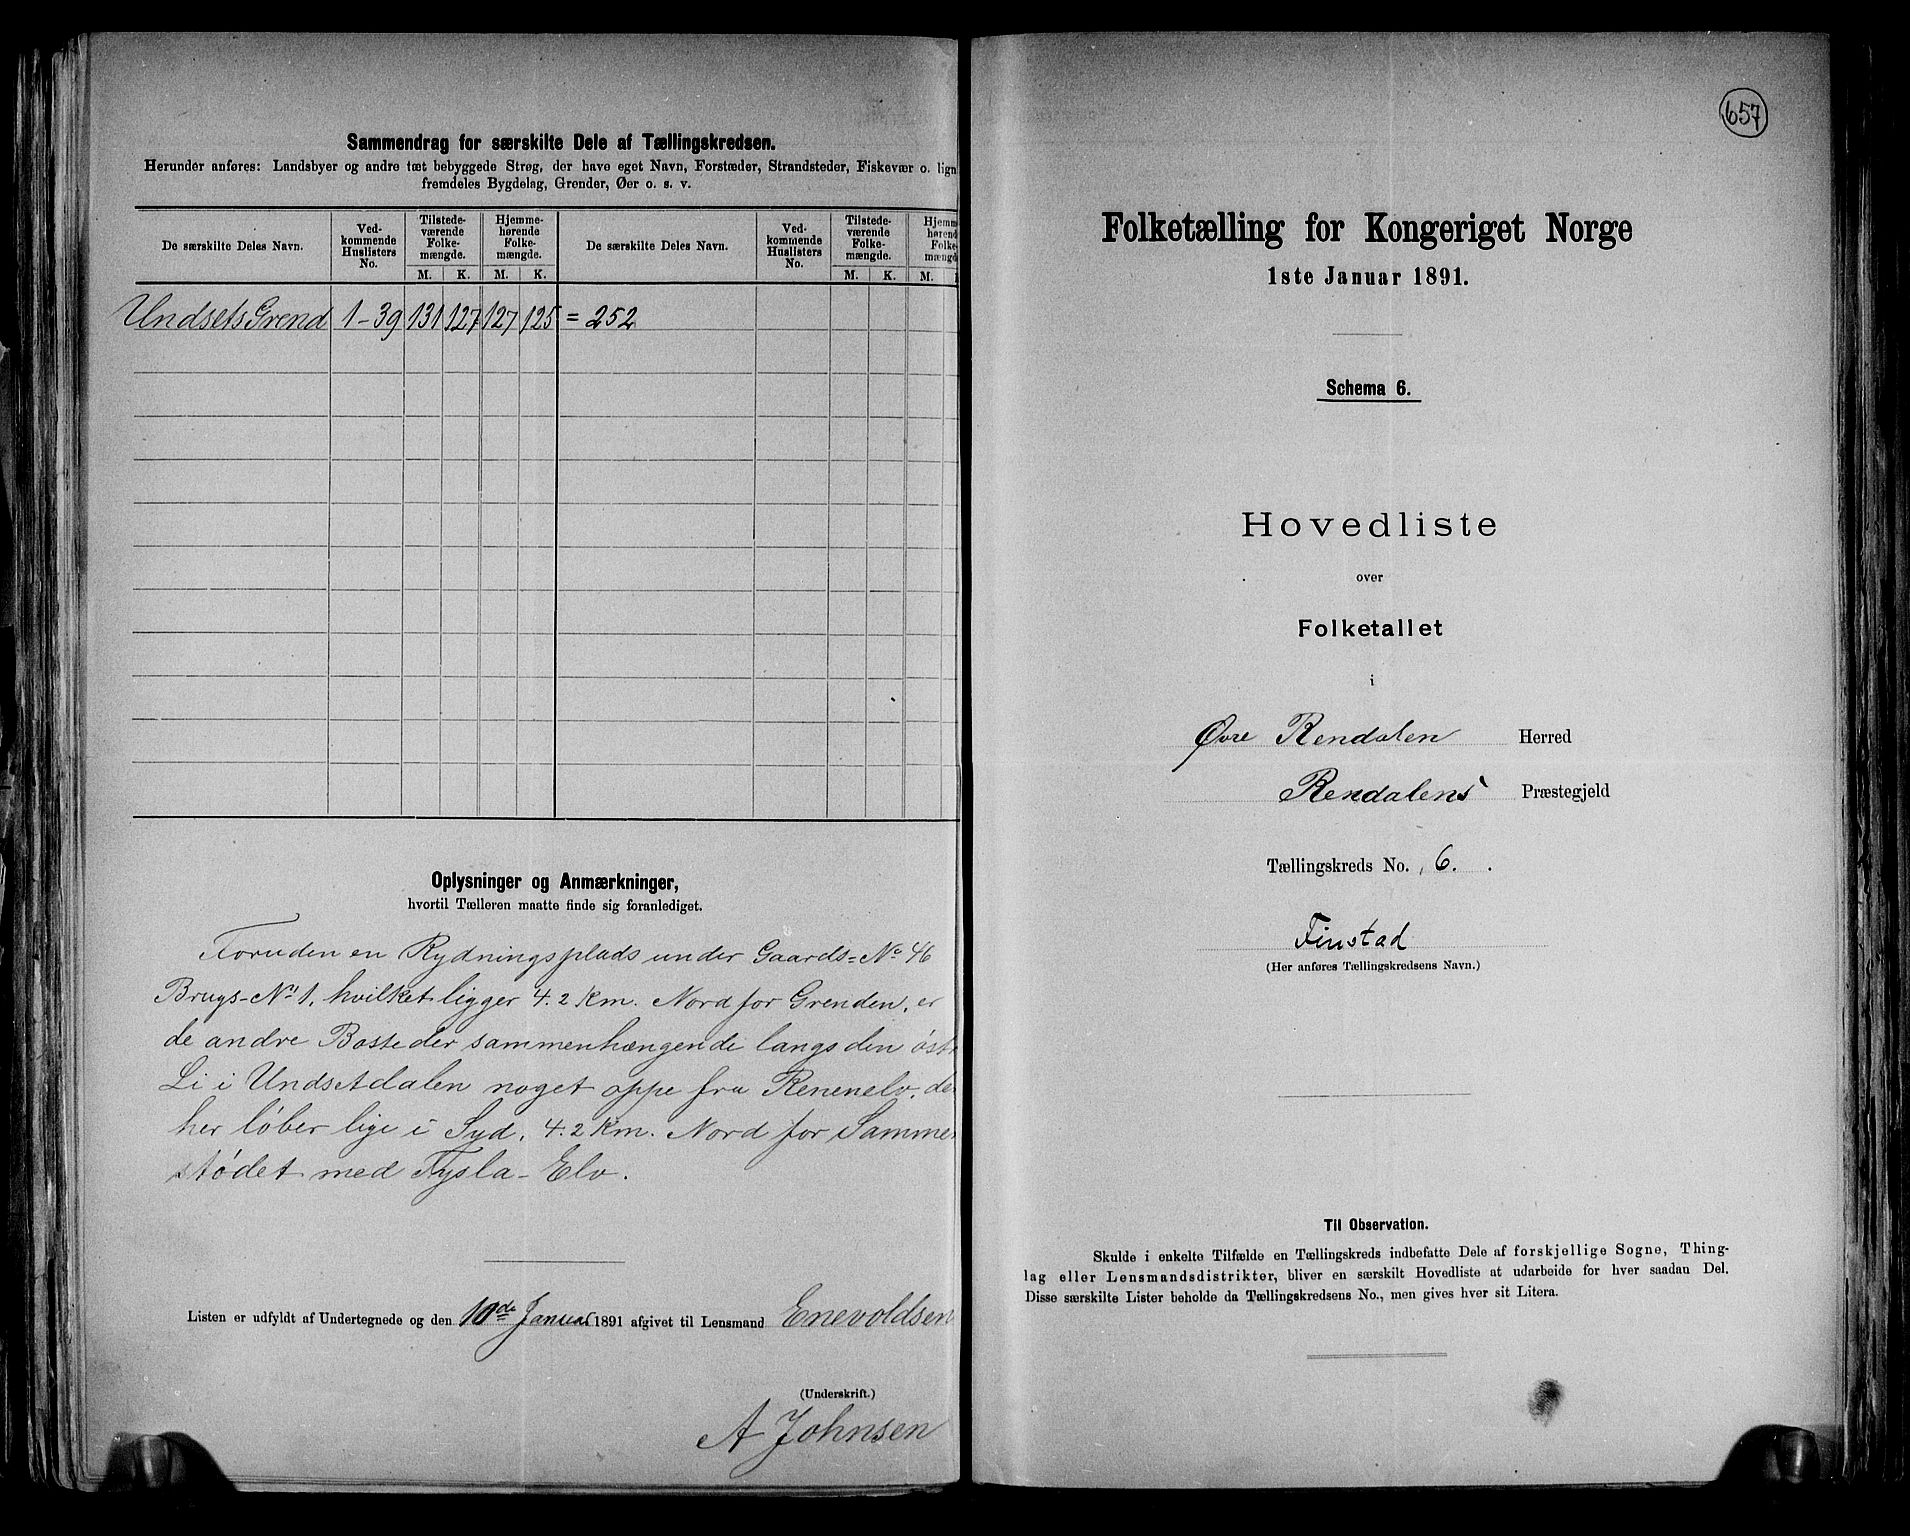 Sammendrag for særskilte Dele af Tællingskredsen.
Herunder anføres: Landsbyer og andre tæt bebyggede Strøg, der have eget Navn, Forstæder, Strandsteder, Fiskevær o. lign
fremdeles Bygdelag, Grender, Øer o. s. v.
De særskilte Deles Navn. Ved-kommende Huslisters No. Tilstede-værende Folke-mængde. Hjemme-hørende Folke-mængde. De særskilte Deles Navn. Ved-kommende Huslisters No. Tilstede-værende Folke-mængde. Hjemm hørend Folke mængd
M. K. M. K. M. K. M.
Undsets Grend 1-39 131 127 127 125 = 252
Oplysninger og Anmærkninger,
hvortil Tælleren maatte finde sig foranlediget.
Foruden en Rydningsplads under Gaards=No 46
Brugs-No 1, hvilket ligger 4.2 Km. Nord for Grenden, er
de andre Bosteder sammenhængende langs den øst
Li i Undsetdalen noget oppe fra Renenelv, de
her løber lige i Syd, 4.2 Km. Nord for Samme
stødet med Tysla-Elv.
Listen er udfyldt af Undertegnede og den 10de Januar 1891 afgivet til Lensmand Enevoldsen
(Underskrift.)
A Johnsen
657
Folketælling for Kongeriget Norge
1ste Januar 1891.
Schema 6.
Hovedliste
over
Folketallet
i
Øvre Rendalen Herred
Rendalens Præstegjeld
Tællingskreds No. 6.
Finstad
(Her anføres Tællingskredsens Navn.)
Til Observation.
Skulde i enkelte Tilfælde en Tællingskreds indbefatte Dele af forskjellige Sogne, Thing-
lag eller Lensmandsdistrikter, bliver en særskilt Hovedliste at udarbeide for hver saadan Del.
Disse særskilte Lister beholde da Tællingskredsens No., men gives hver sit Litera.